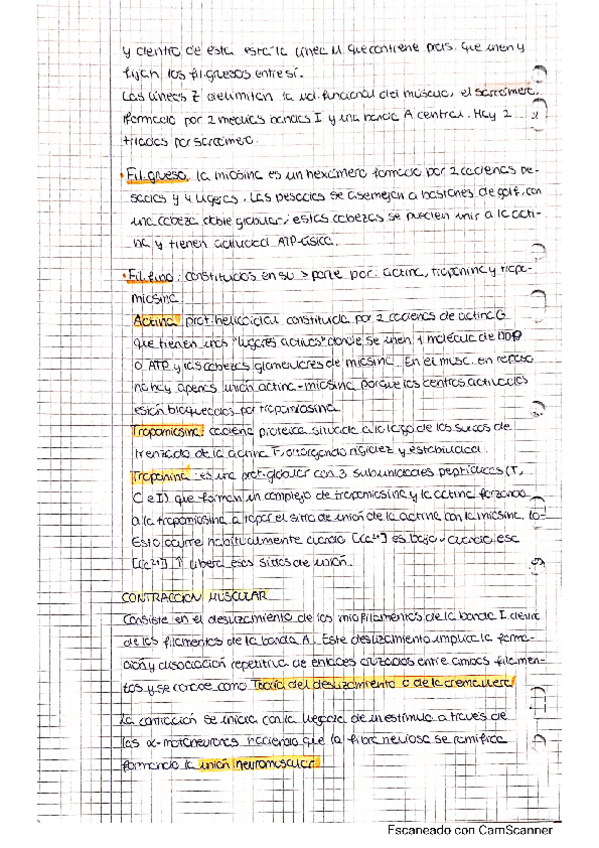 y dentro de esta esta la línea M que contiene prots. que unen y
fijan los fil. gruesos entre sí.
Las líneas Z delimitan la ud. funcional del músculo, el sarcómero,
formado por 2 medias bandas I y una banda A central. Hay 2
triadas por sarcómero.
• Fil. grueso: la miosina es un hexámero formado por 2 cadenas pe-
sadas y 4 ligeras. Las pesadas se asemejan a bastones de golf, con
una cabeza doble globular; estas cabezas se pueden unir a la acti-
na y tienen actividad ATP-ásica.
• Fil. fino: constituidos en su > parte por: actina, troponina y tropo-
miosina.
Actina: prot. helicoidal constituida por 2 cadenas de actina G
que tienen unos "lugares activos" donde se unen 1 molécula de ADP
o ATP y las cabezas globulares de miosina. En el musc. en reposo
no hay apenas unión actina-miosina porque los centros activos
están bloqueados por tropomiosina.
Tropomiosina: cadena proteica situada a lo largo de los surcos de
trenzado de la actina F, otorgando rigidez y estabilidad.
Troponina: es una prot. globular con 3 subunidades peptídicas (T,
C e I) que forman un complejo de tropomiosina y la actina forzando
a la tropomiosina a tapar el sitio de unión de la actina con la miosina.
Esto ocurre habitualmente cuando [Ca²⁺] es bajo, cuando esc
[Ca²⁺] ↑ libera esos sitios de unión.
CONTRACCIÓN MUSCULAR
Consiste en el deslizamiento de los miofilamentos de la banda I
de los filamentos de la banda A. Este deslizamiento implica la forma-
ción y disociación repetitiva de enlaces cruzados entre ambos filamen-
tos y se conoce como Teoría del deslizamiento o de la cremallera
La contracción se inicia con la llegada de un estímulo a través de
las α-motoneuronas haciendo que la fibra nerviosa se ramifica
formando la unión neuromuscular.
Escaneado con CamScanner